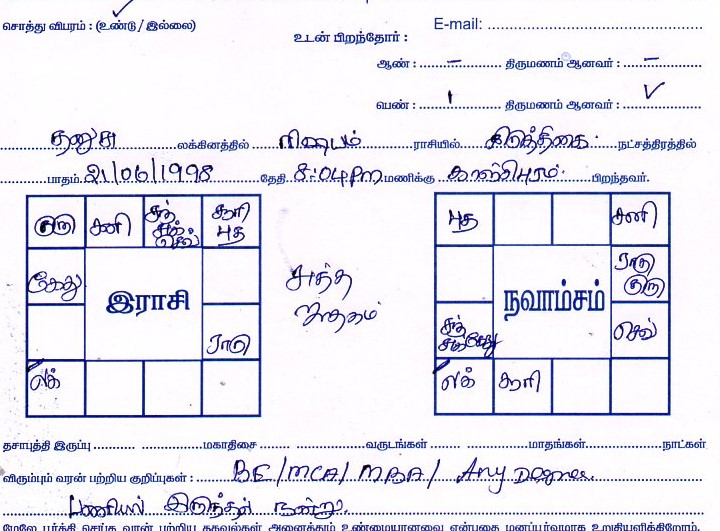 சொத்து விபரம் : (உண்டு / இல்லை)
E-mail:
உடன் பிறந்தோர் :
ஆண் : – திருமணம் ஆனவர் : –
பெண் : 1 திருமணம் ஆனவர் : ✓
தனுசு லக்கினத்தில் ரிஷபம் ராசியில் கிருத்திகை நட்சத்திரத்தில்
பாதம் 21/06/1998 தேதி 8:04 PM மணிக்கு காஞ்சிபுரம் பிறந்தவர்.
குரு சனி சந் சுக் செவ் சூரி புத
கேது
இராசி
ராகு
லக்
சுத்த ஜாதகம்
புத சனி
ராகு குரு
நவாம்சம்
சந் சுக் கேது செவ்
லக் சூரி
தசாபுத்தி இருப்பு மகாதிசை வருடங்கள் மாதங்கள் நாட்கள்
விரும்பும் வரன் பற்றிய குறிப்புகள் : BE/MCA/MBA/ Any Degree
பணியில் இருந்தால் நன்று.
மேலே பூர்த்தி செய்த வரன் பற்றிய தகவல்கள் அனைத்தும் உண்மையானவை என்பதை மனப்பூர்வமாக உறுதியளிக்கிறோம்.